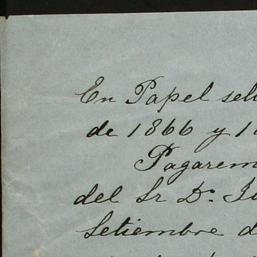 En Papel sell
de 1866 y 18
Pagarem
del Sr Dn. Ju
Setiembre d